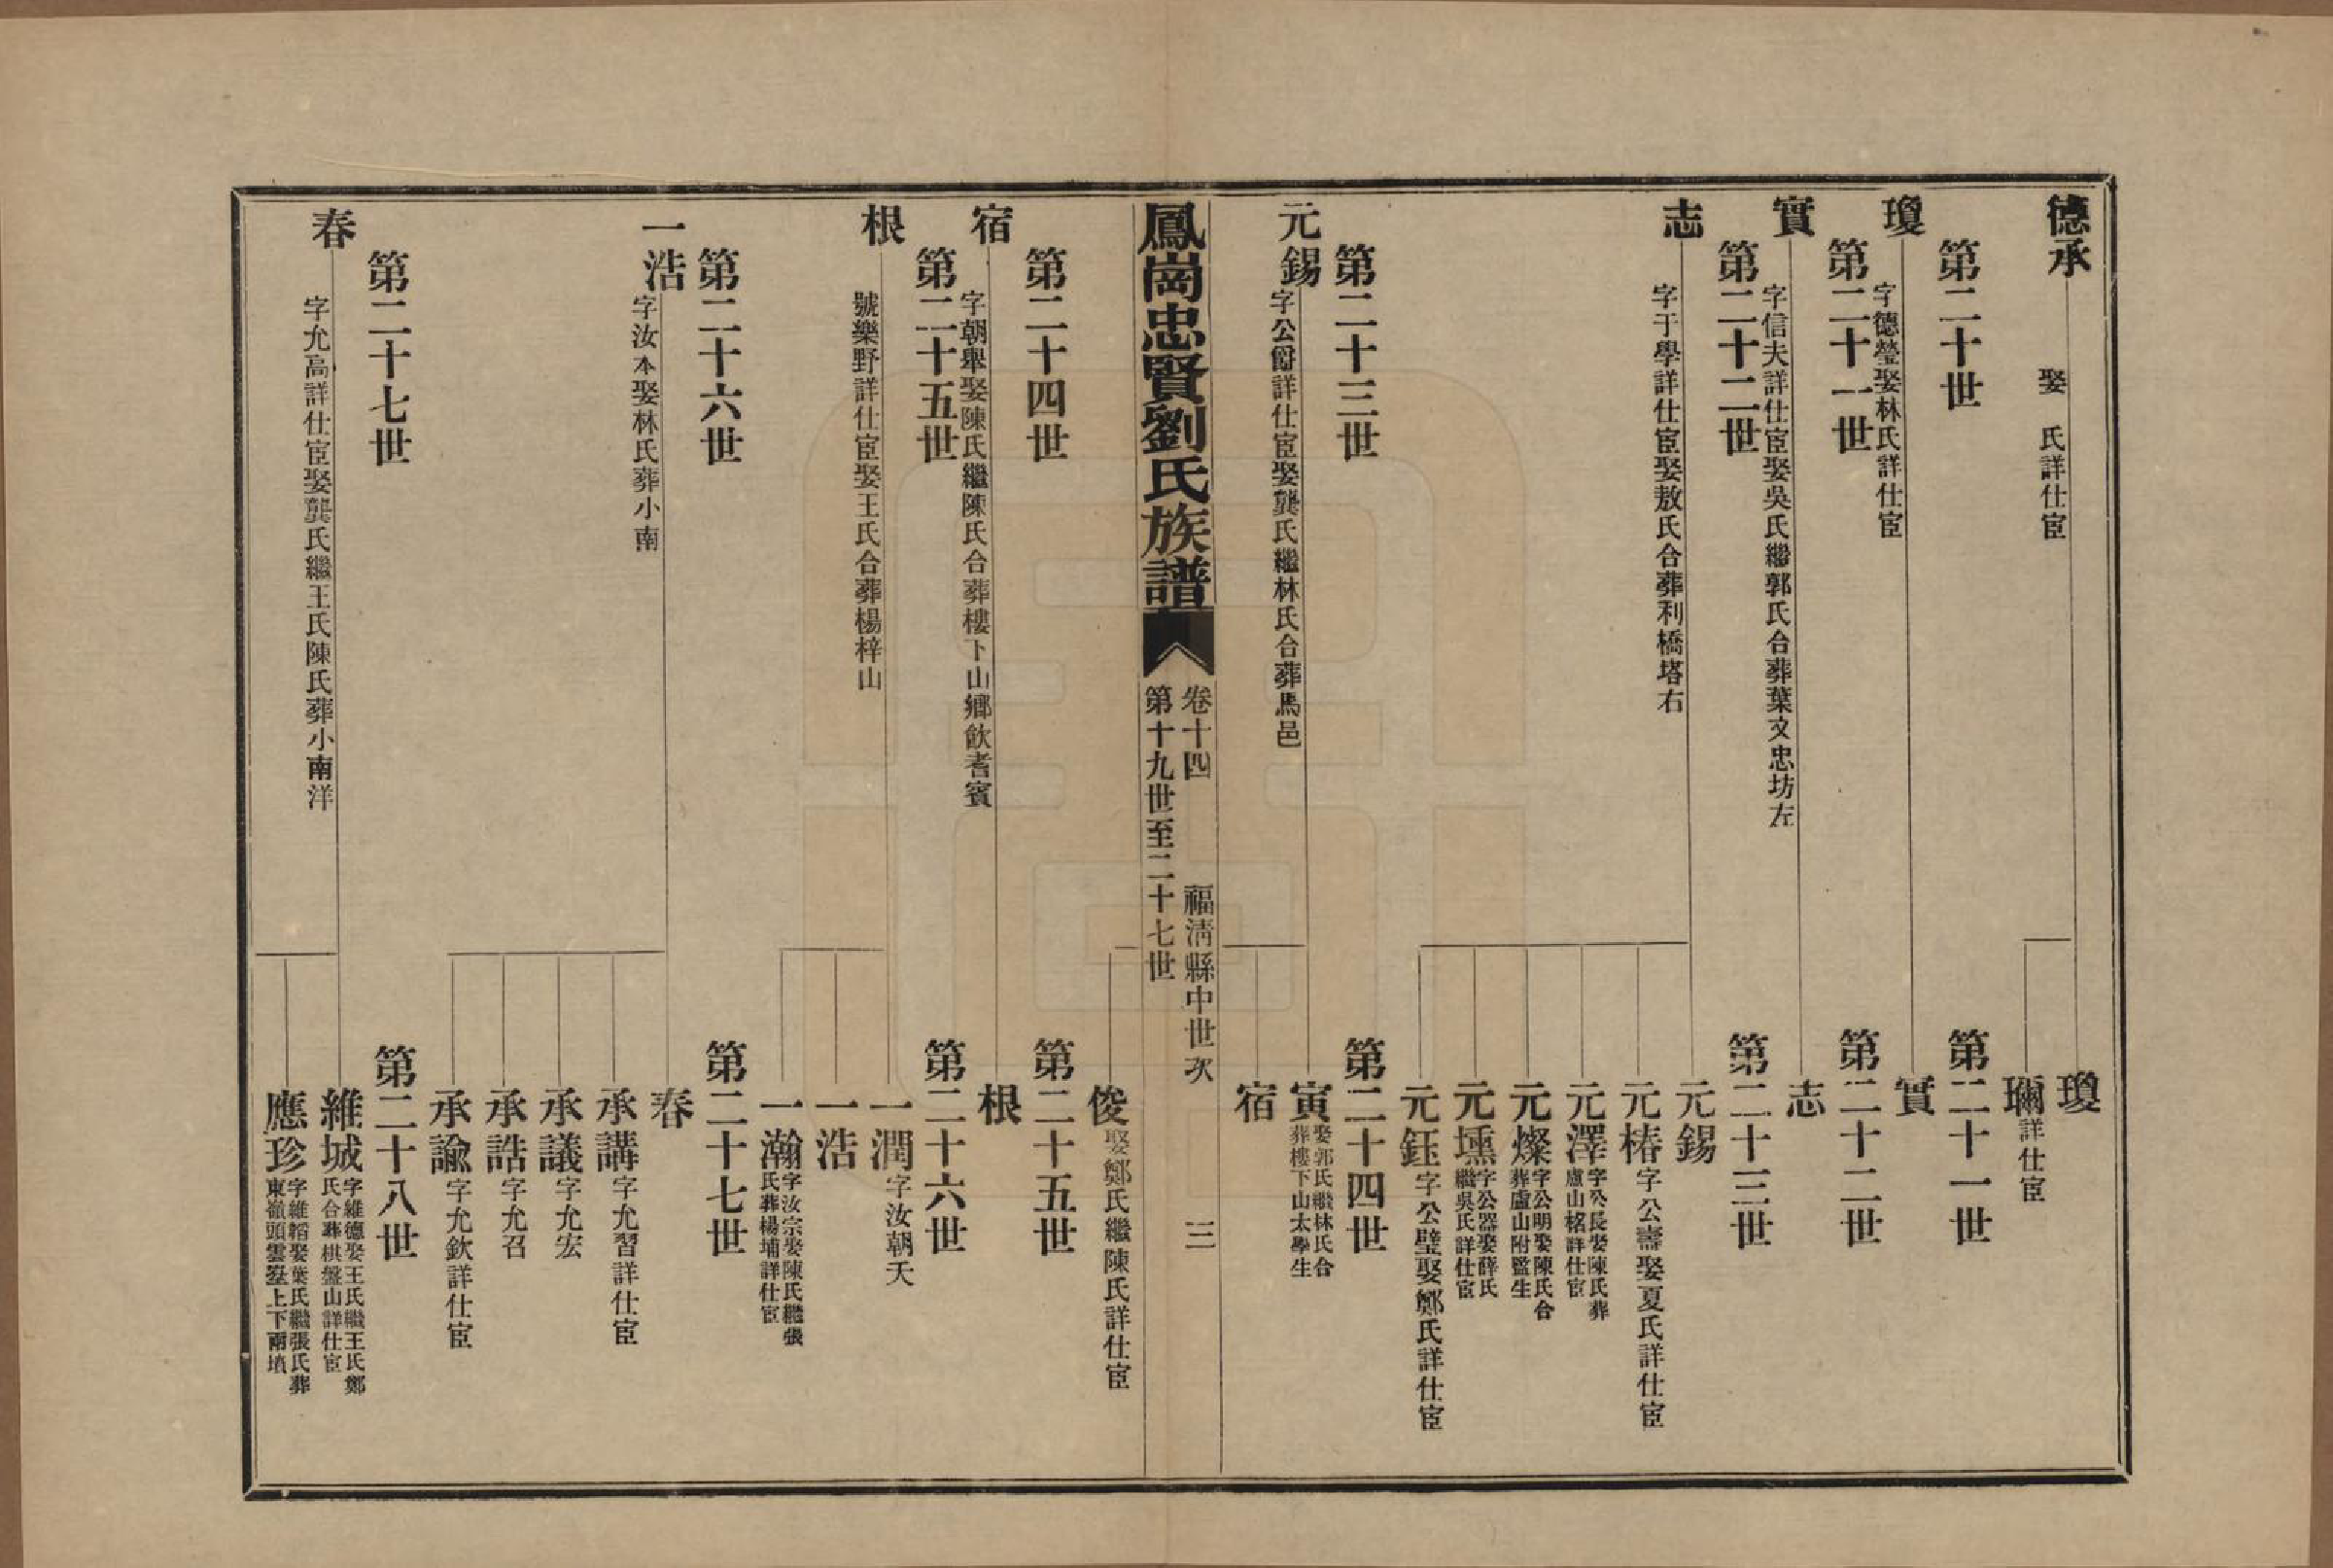 德承
娶　氏詳仕宦
瓊
璊詳仕宦
第二十世
第二十一世
瓊
字德瑩娶林氏詳仕宦
實
第二十一世
第二十二世
實
字信夫詳仕宦娶吳氏繼郭氏合葬葉文忠坊左
志
第二十二世
第二十三世
志
字于學詳仕宦娶敖氏合葬利橋塔右
元錫
元椿字公壽娶夏氏詳仕宦
元澤字公長娶陳氏葬
盧山格詳仕宦
元燦字公明娶陳氏合
葬盧山附監生
元壎字公器娶薛氏
繼吳氏詳仕宦
元鈺字公璧娶鄭氏詳仕宦
第二十三世
第二十四世
元錫
字公爵詳仕宦娶龔氏繼林氏合葬馬邑
寅娶郭氏繼林氏合
葬樓下山太學生
宿
鳳崗忠賢劉氏族譜
卷十四　福清縣中世次　三
第十九世至二十七世
俊娶鄭氏繼陳氏詳仕宦
第二十四世
第二十五世
宿
字朝舉娶陳氏繼陳氏合葬樓下山鄉飲耆賓
根
第二十五世
第二十六世
根
號樂野詳仕宦娶王氏合葬楊梓山
一潤字汝朝夭
一浩
一瀚字汝宗娶陳氏繼張
氏葬楊埔詳仕宦
第二十六世
第二十七世
一浩
字汝本娶林氏葬小南
春
承講字允習詳仕宦
承議字允宏
承誥字允召
承諭字允欽詳仕宦
第二十七世
第二十八世
春
字允高詳仕宦娶龔氏繼王氏陳氏葬小南洋
維城字維德娶王氏繼王氏鄭
氏合葬棋盤山詳仕宦
應珍字維韜娶葉氏繼張氏葬
東嶺頭雲壑上下兩墳